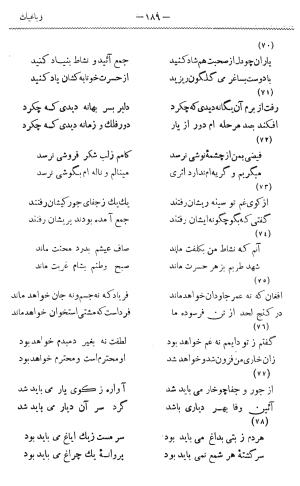 رباعیات — ۱۸۹ —
(۷۰)
یاران چو دل از صحبت هم شاد کنید جمع آئید و نشاط بنیاد کنید
با دوست بساغر می گلگون ریزید از حسرت خونابه کشان یاد کنید
(۷۱)
رفت از برم آن یگانه دیدی که چکرد دلبر بسر بهانه دیدی که چکرد
افکند بصد مرحله ام دور از یار دور فلک و زمانه دیدی که چکرد
(۷۲)
فیضی بمن از چشمهٔ نوشی نرسد کامم ز لب شکر فروشی نرسد
میگریم و گریه ام ندارد اثری مینالم و ناله ام بگوشی نرسد
(۷۳)
از کوی غم تو سینه ریشان رفتند یک یک ز جفای جور کیشان رفتند
گفتی که بگو چگونه ایشان رفتند جمع آمده بودند پریشان رفتند
(۷۴)
آنم که نشاط من بکلفت ماند صاف عیشم بدرد محنت ماند
شهد طربم بزهر حسرت ماند صبح وطنم بشام غربت ماند
(۷۵)
افغان که نه عمر جاودان خواهد ماند فریاد که نه جسم و نه جان خواهد ماند
در کنج لحد از تن فرسوده ما فرداست که مشتی استخوان خواهد ماند
(۷۶)
گفتم ز تو دایمم نه غم خواهد بود لطفت نه بغیر دمبدم خواهد بود
زان خاری من فزون شد و خواهد شد او محترم است و محترم خواهد بود
(۷۷)
از جور و جفا چو خار می باید شد آواره ز کوی یار می باید شد
آئین وفا بهر دیاری باشد گرد سر آن دیار می باید شد
(۷۸)
هردم ز بتی بداغ می باید بود سرمست ز یک ایاغ می باید بود
سرگشتهٔ هر شمع نمی باید بود پروانهٔ یک چراغ می باید بود